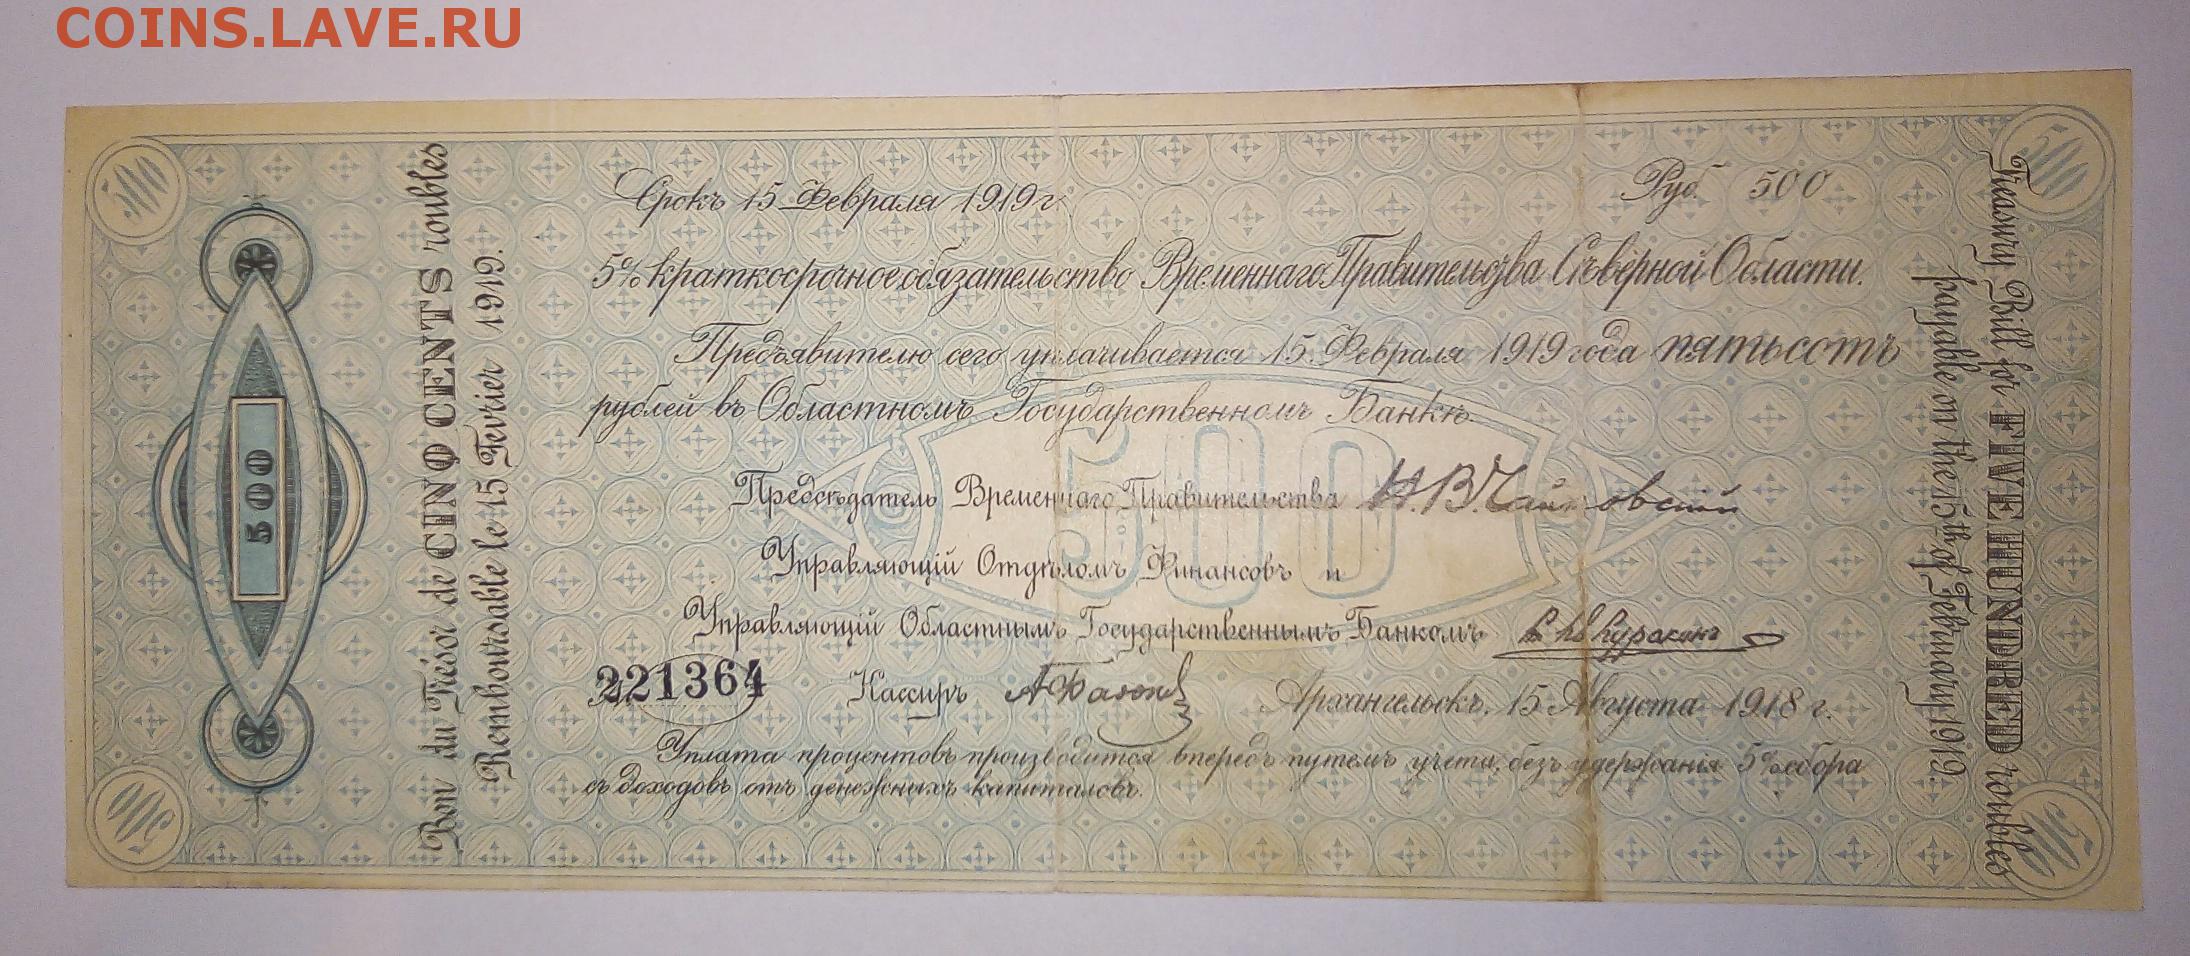 COINS.LAVE.RU
500
500
Срокъ 15 Февраля 1919 г.
Руб. 500
5% краткосрочное обязательство Временнаго Правительства Сѣверной Области.
Предъявителю сего уплачивается 15 Февраля 1919 года пятьсотъ
рублей въ Областномъ Государственномъ Банкѣ.
500
Предсѣдатель Временнаго Правительства Н.В. Чайковский
Управляющій Отдѣломъ Финансовъ и
Управляющій Областнымъ Государственнымъ Банкомъ Куракинъ
221364
Кассиръ
Архангельскъ. 15 Августа 1918 г.
Уплата процентовъ производится впередъ путемъ учета, безъ удержанія 5% сбора
съ доходовъ отъ денежныхъ капиталовъ.
Bon du Trésor de CINQ CENTS roubles
Remboursable le 15 Fevrier 1919.
Treasury Bill for FIVE HUNDRED roubles
payable on the 15th of February 1919.
500
500
500